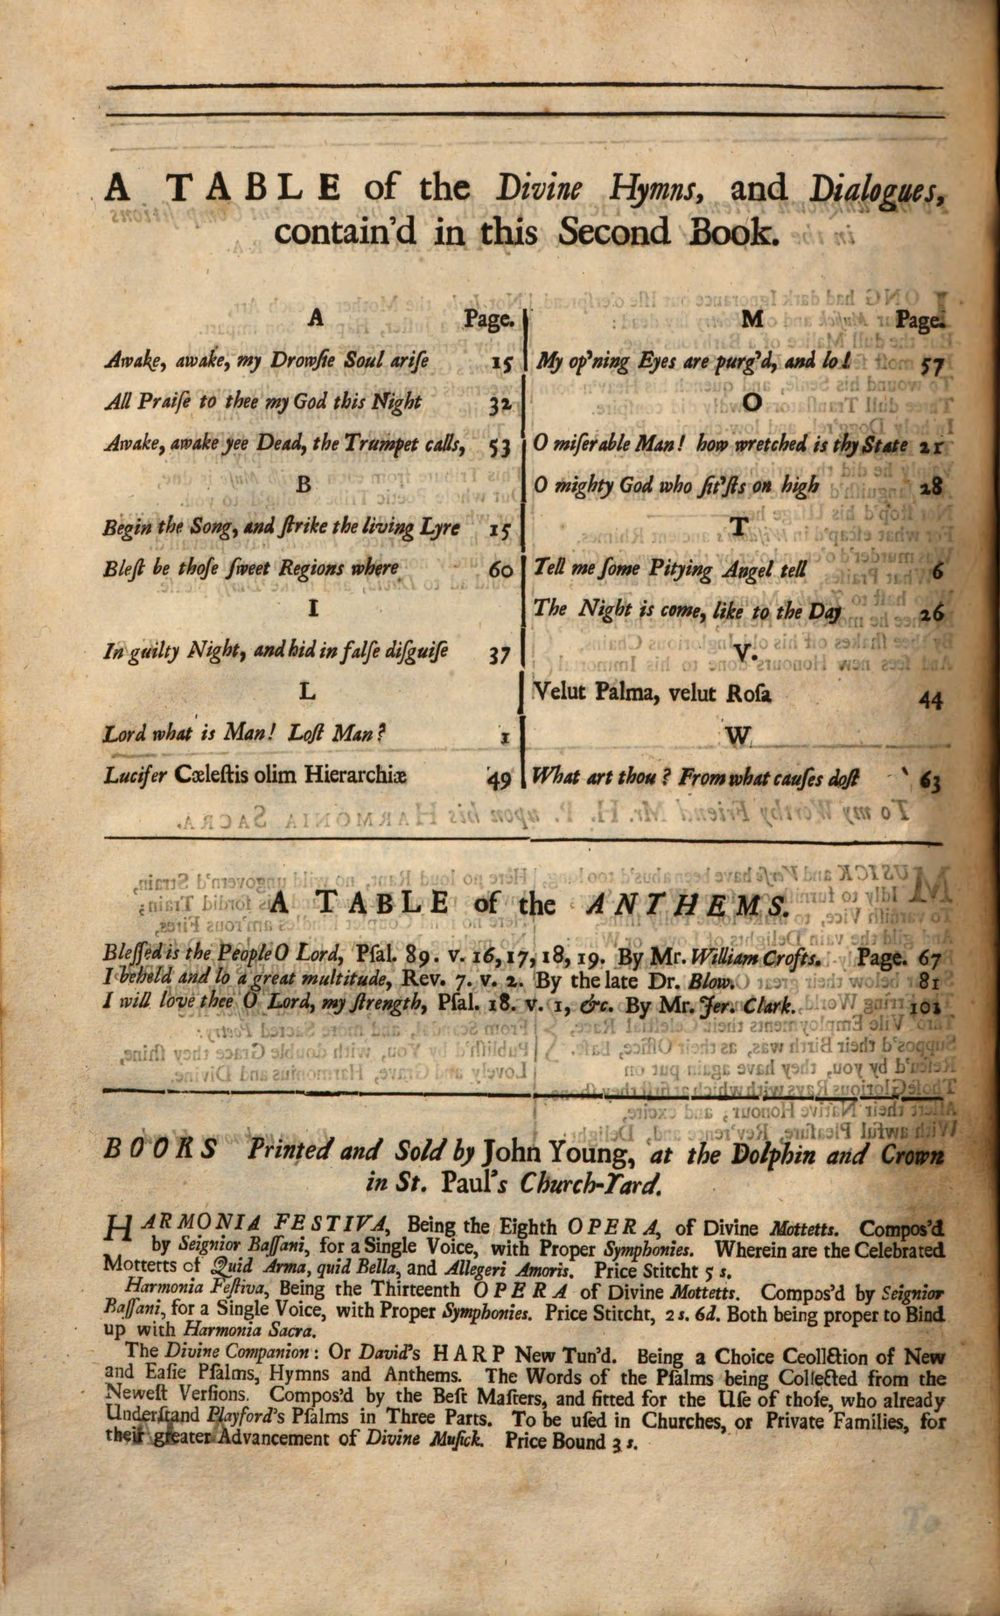 A TABLE of the Divine Hymns, and Dialogues,
contain'd in this Second Book.
A Page.
Awake, awake, my Drowſie Soul ariſe 15
All Praiſe to thee my God this Night 32
Awake, awake yee Dead, the Trumpet calls, 53
B
Begin the Song, and ſtrike the living Lyre 15
Bleſt be thoſe ſweet Regions where 60
I
In guilty Night, and hid in falſe diſguiſe 37
L
Lord what is Man! Loſt Man? 1
Lucifer Cæleſtis olim Hierarchiæ 49
M Page.
My op'ning Eyes are purg'd, and lo! 57
O
O miſerable Man! how wretched is thy State 21
O mighty God who ſit'ſts on high 28
T
Tell me ſome Pitying Angel tell 6
The Night is come, like to the Day 26
V.
Velut Palma, velut Roſa 44
W
What art thou? From what cauſes doſt 63
A TABLE of the ANTHEMS.
Bleſſed is the People O Lord, Pſal. 89. v. 16, 17, 18, 19. By Mr. William Crofts. Page. 67
I beheld and lo a great multitude, Rev. 7. v. 2. By the late Dr. Blow. 81
I will love thee O Lord, my ſtrength, Pſal. 18. v. 1, &c. By Mr. Jer. Clark. 101
BOOKS Printed and Sold by John Young, at the Dolphin and Crown
in St. Paul's Church-Yard.
HARMONIA FESTIVA, Being the Eighth OPERA, of Divine Mottetts. Compos'd
by Seignior Baſſani, for a Single Voice, with Proper Symphonies. Wherein are the Celebrated
Mottetts of Quid Arma, quid Bella, and Allegeri Amoris. Price Stitcht 5 s.
Harmonia Feſtiva, Being the Thirteenth OPERA of Divine Mottetts. Compos'd by Seignior
Baſſani, for a Single Voice, with Proper Symphonies. Price Stitcht, 2 s. 6d. Both being proper to Bind
up with Harmonia Sacra.
The Divine Companion: Or David's HARP New Tun'd. Being a Choice Ceollction of New
and Eaſie Pſalms, Hymns and Anthems. The Words of the Pſalms being Collected from the
Neweſt Verſions. Compos'd by the Beſt Maſters, and fitted for the Uſe of thoſe, who already
Underſtand Playford's Pſalms in Three Parts. To be uſed in Churches, or Private Families, for
their greater Advancement of Divine Muſick. Price Bound 3 s.